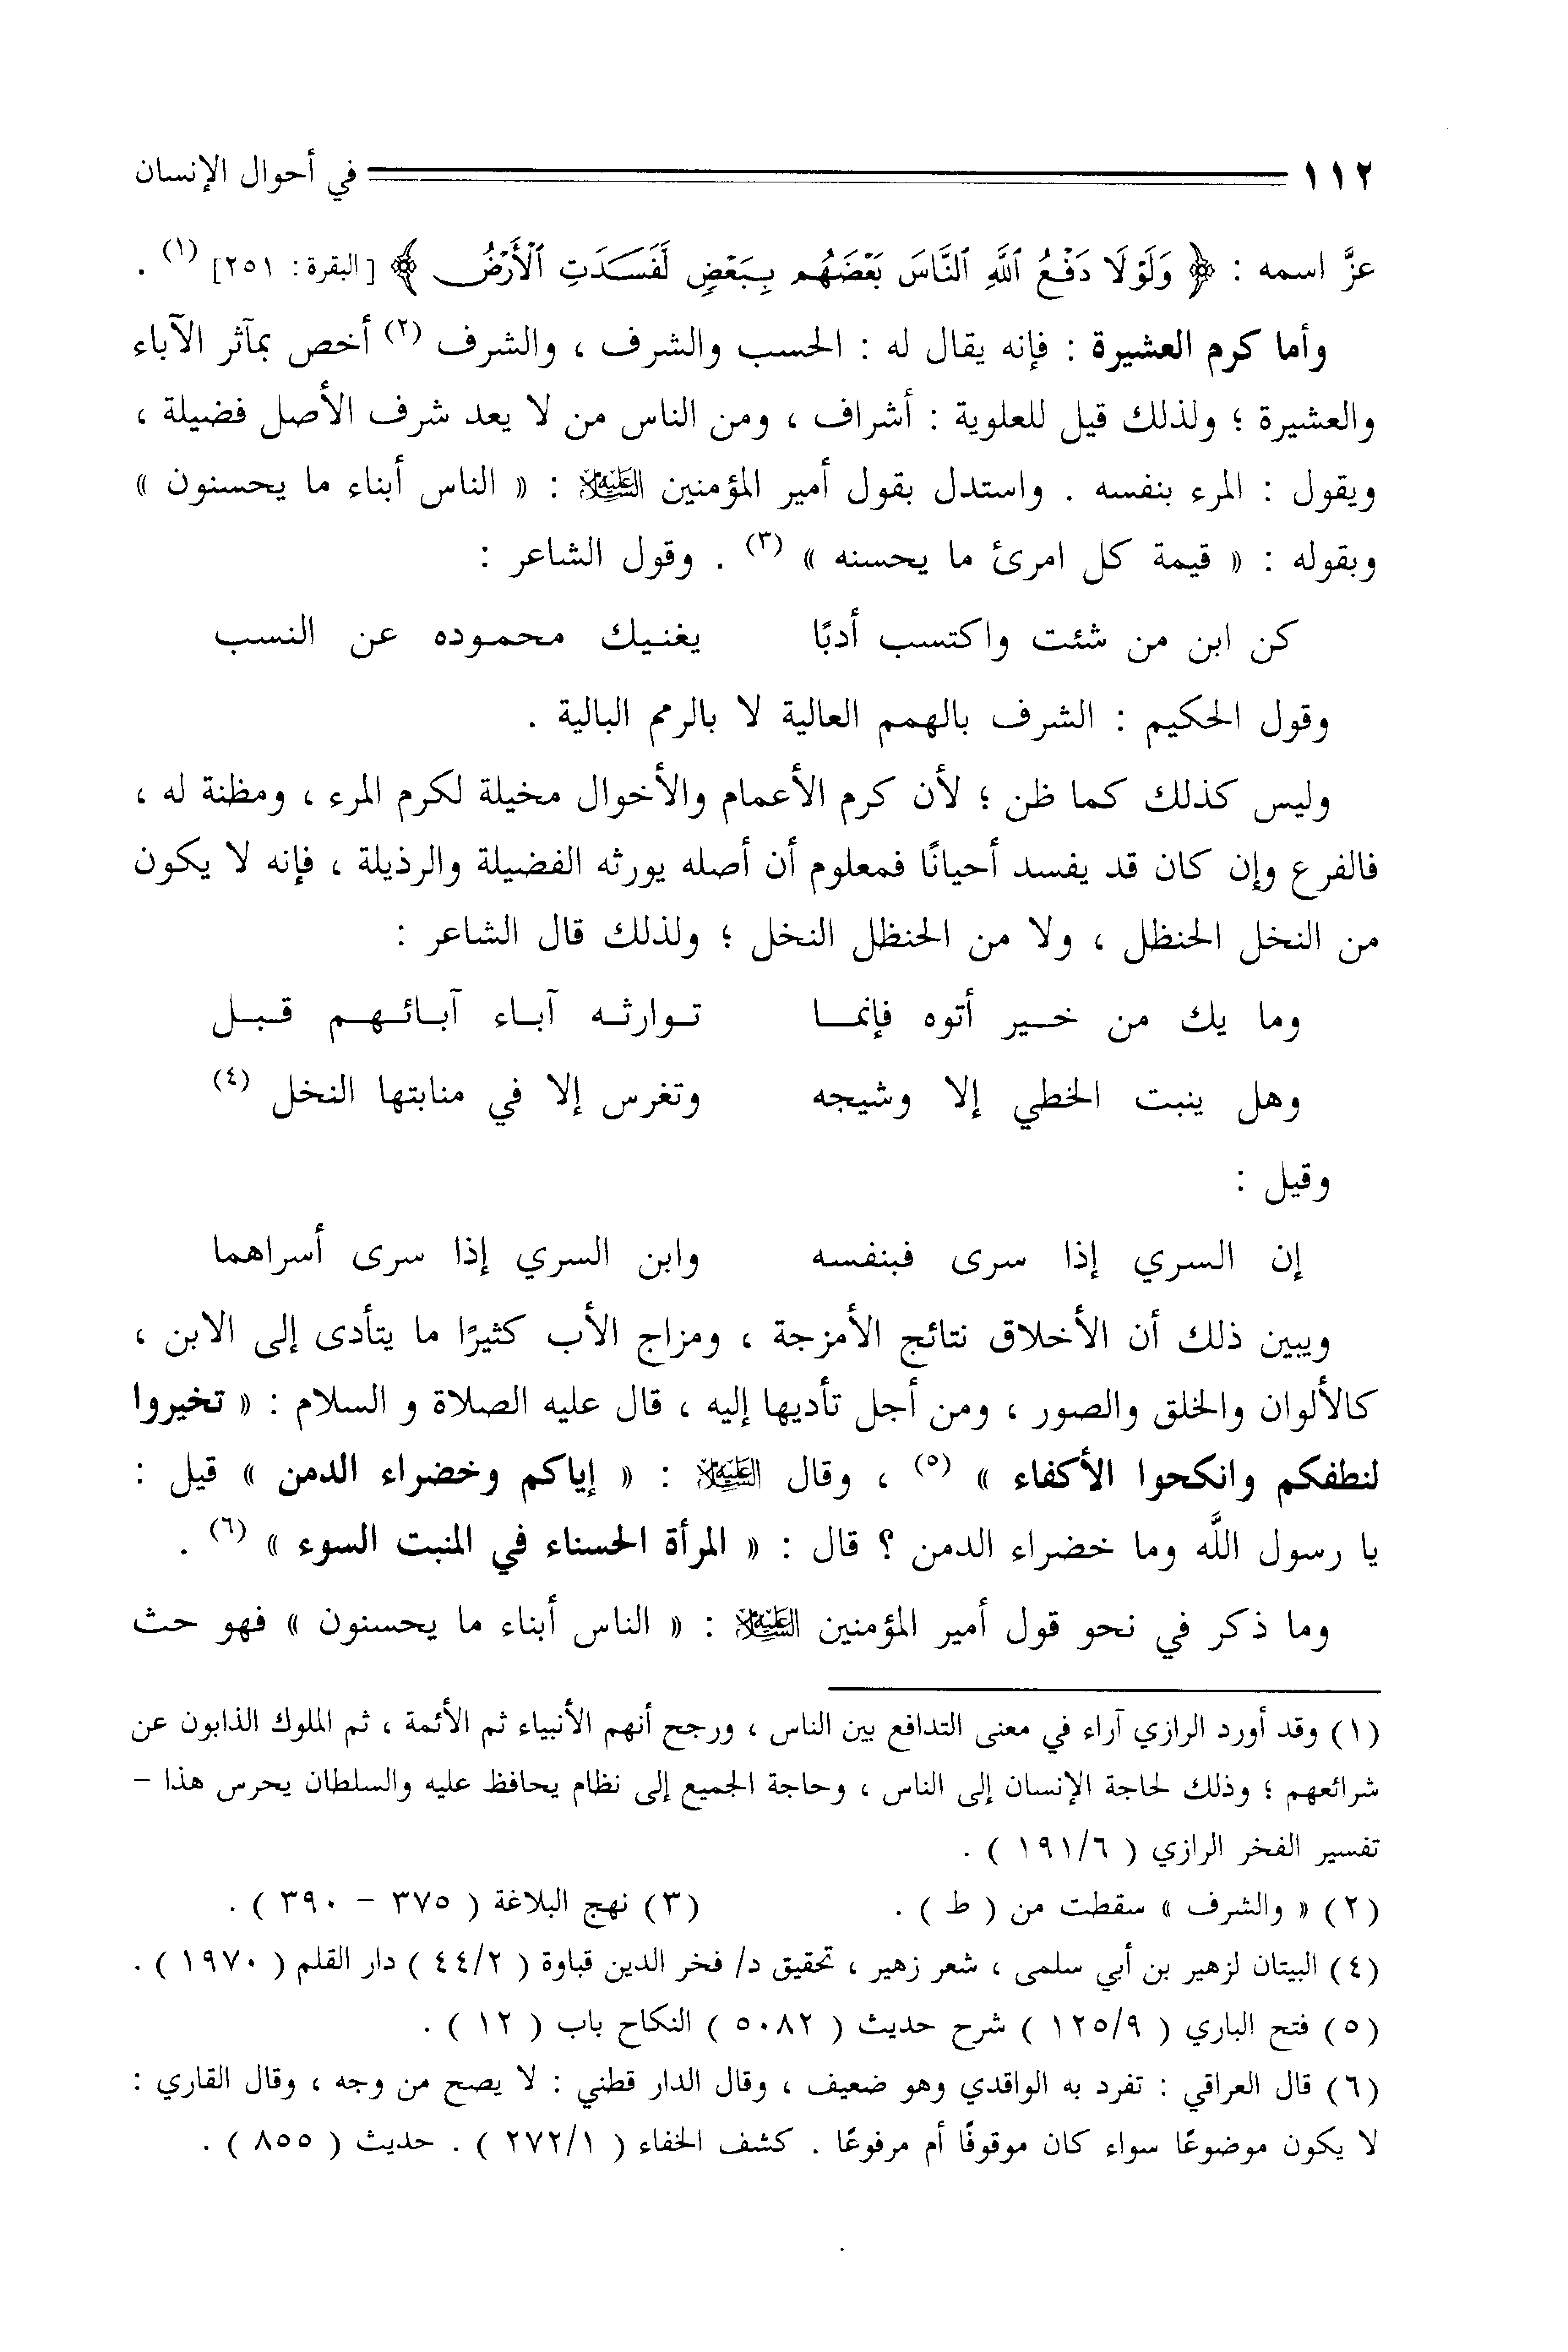 ١١٢ في أحوال الإنسان
عزَّ اسمه : ﴿ وَلَوْلَا دَفْعُ ٱللَّهِ ٱلنَّاسَ بَعْضَهُم بِبَعْضٍ لَّفَسَدَتِ ٱلْأَرْضُ ﴾ [البقرة: ٢٥١] (١) .
وأما كرم العشيرة : فإنه يقال له : الحسب والشرف ، والشرف (٢) أخص بمآثر الآباء
والعشيرة ؛ ولذلك قيل للعلوية : أشراف ، ومن الناس من لا يعد شرف الأصل فضيلة ،
ويقول : المرء بنفسه . واستدل بقول أمير المؤمنين عليه السلام : « الناس أبناء ما يحسنون »
وبقوله : « قيمة كل امرئ ما يحسنه » (٣) . وقول الشاعر :
كن ابن من شئت واكتسب أدبًا يغنيك محموده عن النسب
وقول الحكيم : الشرف بالهمم العالية لا بالرمم البالية .
وليس كذلك كما ظن ؛ لأن كرم الأعمام والأخوال مخيلة لكرم المرء ، ومظنة له ،
فالفرع وإن كان قد يفسد أحيانًا فمعلوم أن أصله يورثه الفضيلة والرذيلة ، فإنه لا يكون
من النخل الحنظل ، ولا من الحنظل النخل ؛ ولذلك قال الشاعر :
وما يك من خير أتوه فإنما توارثه آباء آبائهم قبل
وهل ينبت الخطي إلا وشيجه وتغرس إلا في منابتها النخل (٤)
وقيل :
إن السري إذا سرى فبنفسه وابن السري إذا سرى أسراهما
ويبين ذلك أن الأخلاق نتائج الأمزجة ، ومزاج الأب كثيرًا ما يتأدى إلى الابن ،
كالألوان والخلق والصور ، ومن أجل تأديها إليه ، قال عليه الصلاة و السلام : « تخيروا
لنطفكم وانكحوا الأكفاء » (٥) ، وقال عليه السلام : « إياكم وخضراء الدمن » قيل :
يا رسول اللَّه وما خضراء الدمن ؟ قال : « المرأة الحسناء في المنبت السوء » (٦) .
وما ذكر في نحو قول أمير المؤمنين عليه السلام : « الناس أبناء ما يحسنون » فهو حث
(١) وقد أورد الرازي آراء في معنى التدافع بين الناس ، ورجح أنهم الأنبياء ثم الأئمة ، ثم الملوك الذابون عن
شرائعهم ؛ وذلك لحاجة الإنسان إلى الناس ، وحاجة الجميع إلى نظام يحافظ عليه والسلطان يحرس هذا –
تفسير الفخر الرازي ( ١٩١/٦ ) .
(٢) « والشرف » سقطت من ( ط ) . (٣) نهج البلاغة ( ٣٧٥ – ٣٩٠ ) .
(٤) البيتان لزهير بن أبي سلمى ، شعر زهير ، تحقيق د/ فخر الدين قباوة ( ٤٤/٢ ) دار القلم ( ١٩٧٠ ) .
(٥) فتح الباري ( ١٢٥/٩ ) شرح حديث ( ٥٠٨٢ ) النكاح باب ( ١٢ ) .
(٦) قال العراقي : تفرد به الواقدي وهو ضعيف ، وقال الدار قطني : لا يصح من وجه ، وقال القاري :
لا يكون موضوعًا سواء كان موقوفًا أم مرفوعًا . كشف الخفاء ( ٢٧٢/١ ) . حديث ( ٨٥٥ ) .